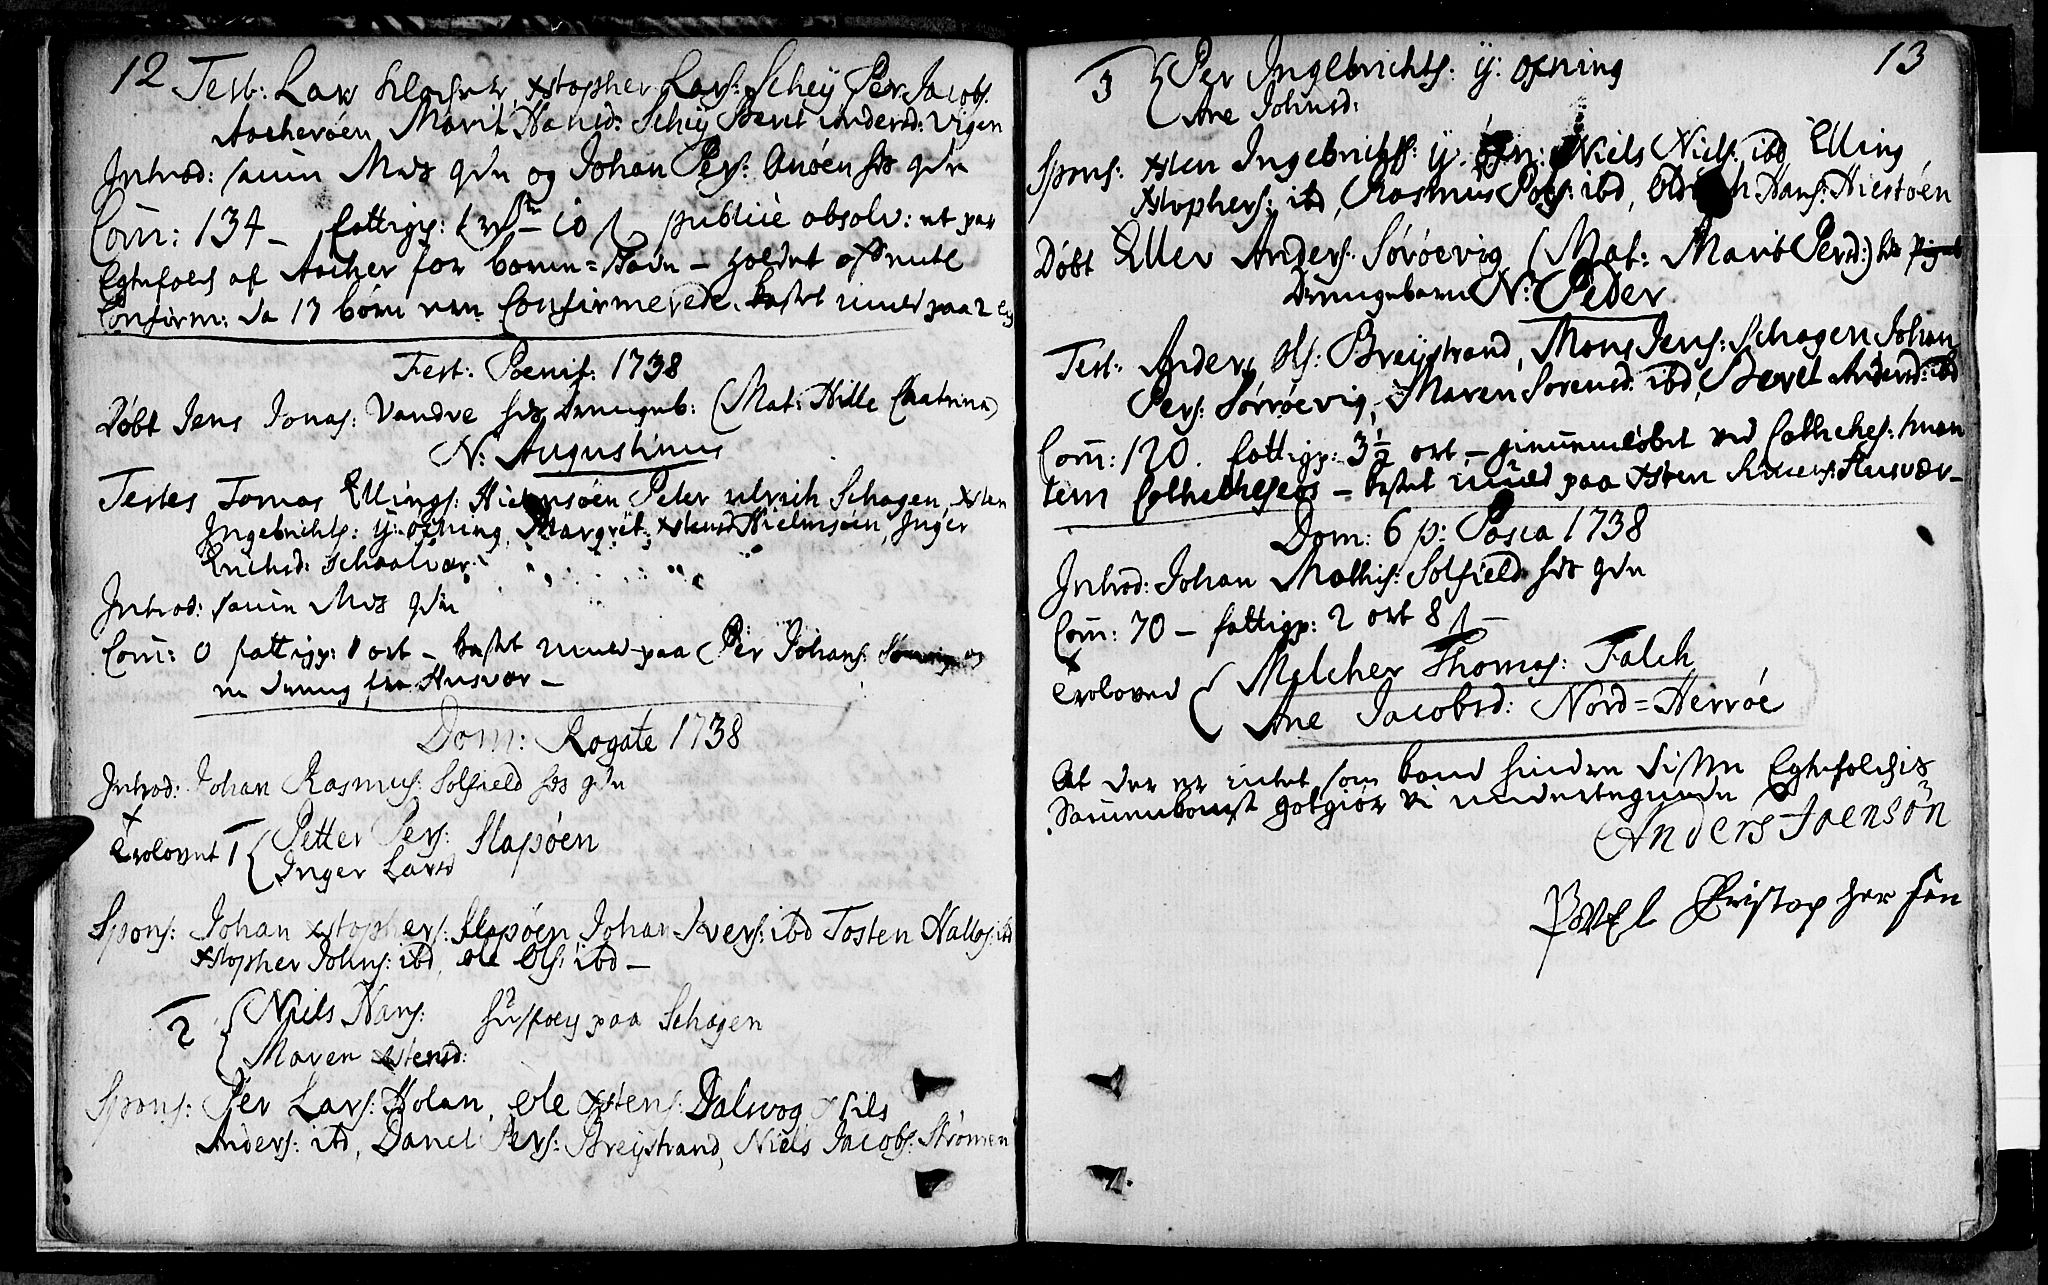 12
Test: Lars Klocher, xstopher Lars: Schey Per Jacobs:
Aacherøen, Marit Hansd: Schey Berit Andersd: Vigen
Introd: samme Mds qvin og Johan Pers: Buøen hs qvin
Com: 134 – fattigp: publice absolv: et par
Egtefolch af Aacher for barne=
Confirm: da 13 børn ere Confirmerede. paa 2
Fest: Poenit: 1738
Døbt Jens Jonas: Vandve hs drengeb: (Mat: Hille Chatrina)
N: Augustinus
Testes Tomas Ellings: Hielmsøen Peter ulrich Schagen, xsten
Ingebrichts: ÿ: ofning, Margret: xstensd Hielmsøen, Inger
Erichsd: schaalvær
Introd: samme Mds qvin
Com: 0 fattigp: 1 ort – paa Per Johans:
en dreng fra Husvær –
Dom: Rogate 1738
Introd: Johan Rasmus: Solfield hs qvin
Trolovet 1 Petter Pers: Slapøen
Inger Larsd
Spons: Johan xstophers: Slapøen Johan Ivers: ibd Tosten Hallos: ibd
xstopher Johns: ibd, ole Ols: ibd –
2 Niels Hans: paa Schagen
Maren xstensd:
Spons: Per Lars: Holan, ole xstens: Dalsvog Nils
Anders: ibd, Danel Pers: Breÿstrand, Niels Jacobs: Strømen
13
3 Per Ingebrichts: ÿ: ofning
Ane Johnsd:
Spons: xsten Ingebrichts: ÿ: Niels Niels: ibd, Elling
xstophers: ibd, Rasmus Povls: ibd, Hans: Hiestøen
Døbt Eller Anders: Sørøevig (Mat: Marit Persd:) hs
Drengebarn N: Peder
Test: Anders Ols: Breÿstrand, Mons Jens: Schagen Johan
Pers: Sørrøevig, Maren Sorensd: ibd, Beret Andersd: ibd
Com: 120. fattigp: 3½ ort – ved Cathches:
tem – paa xsten Husvær –
Dom: 6 p: Pasca 1738
Introd: Johan Mathis: Solfield hs qvin
Com: 70 – fattigp: 2 ort 8 s –
Troloved Melcher Thomas: Falch
Ane Jacobsd: Nord=Herrøe
At der er intet, som kand hindre disse Egtefolchis
Sammenkomst gotgiør vi undertegnede
Anders Joensøn
Povel Christopher søn